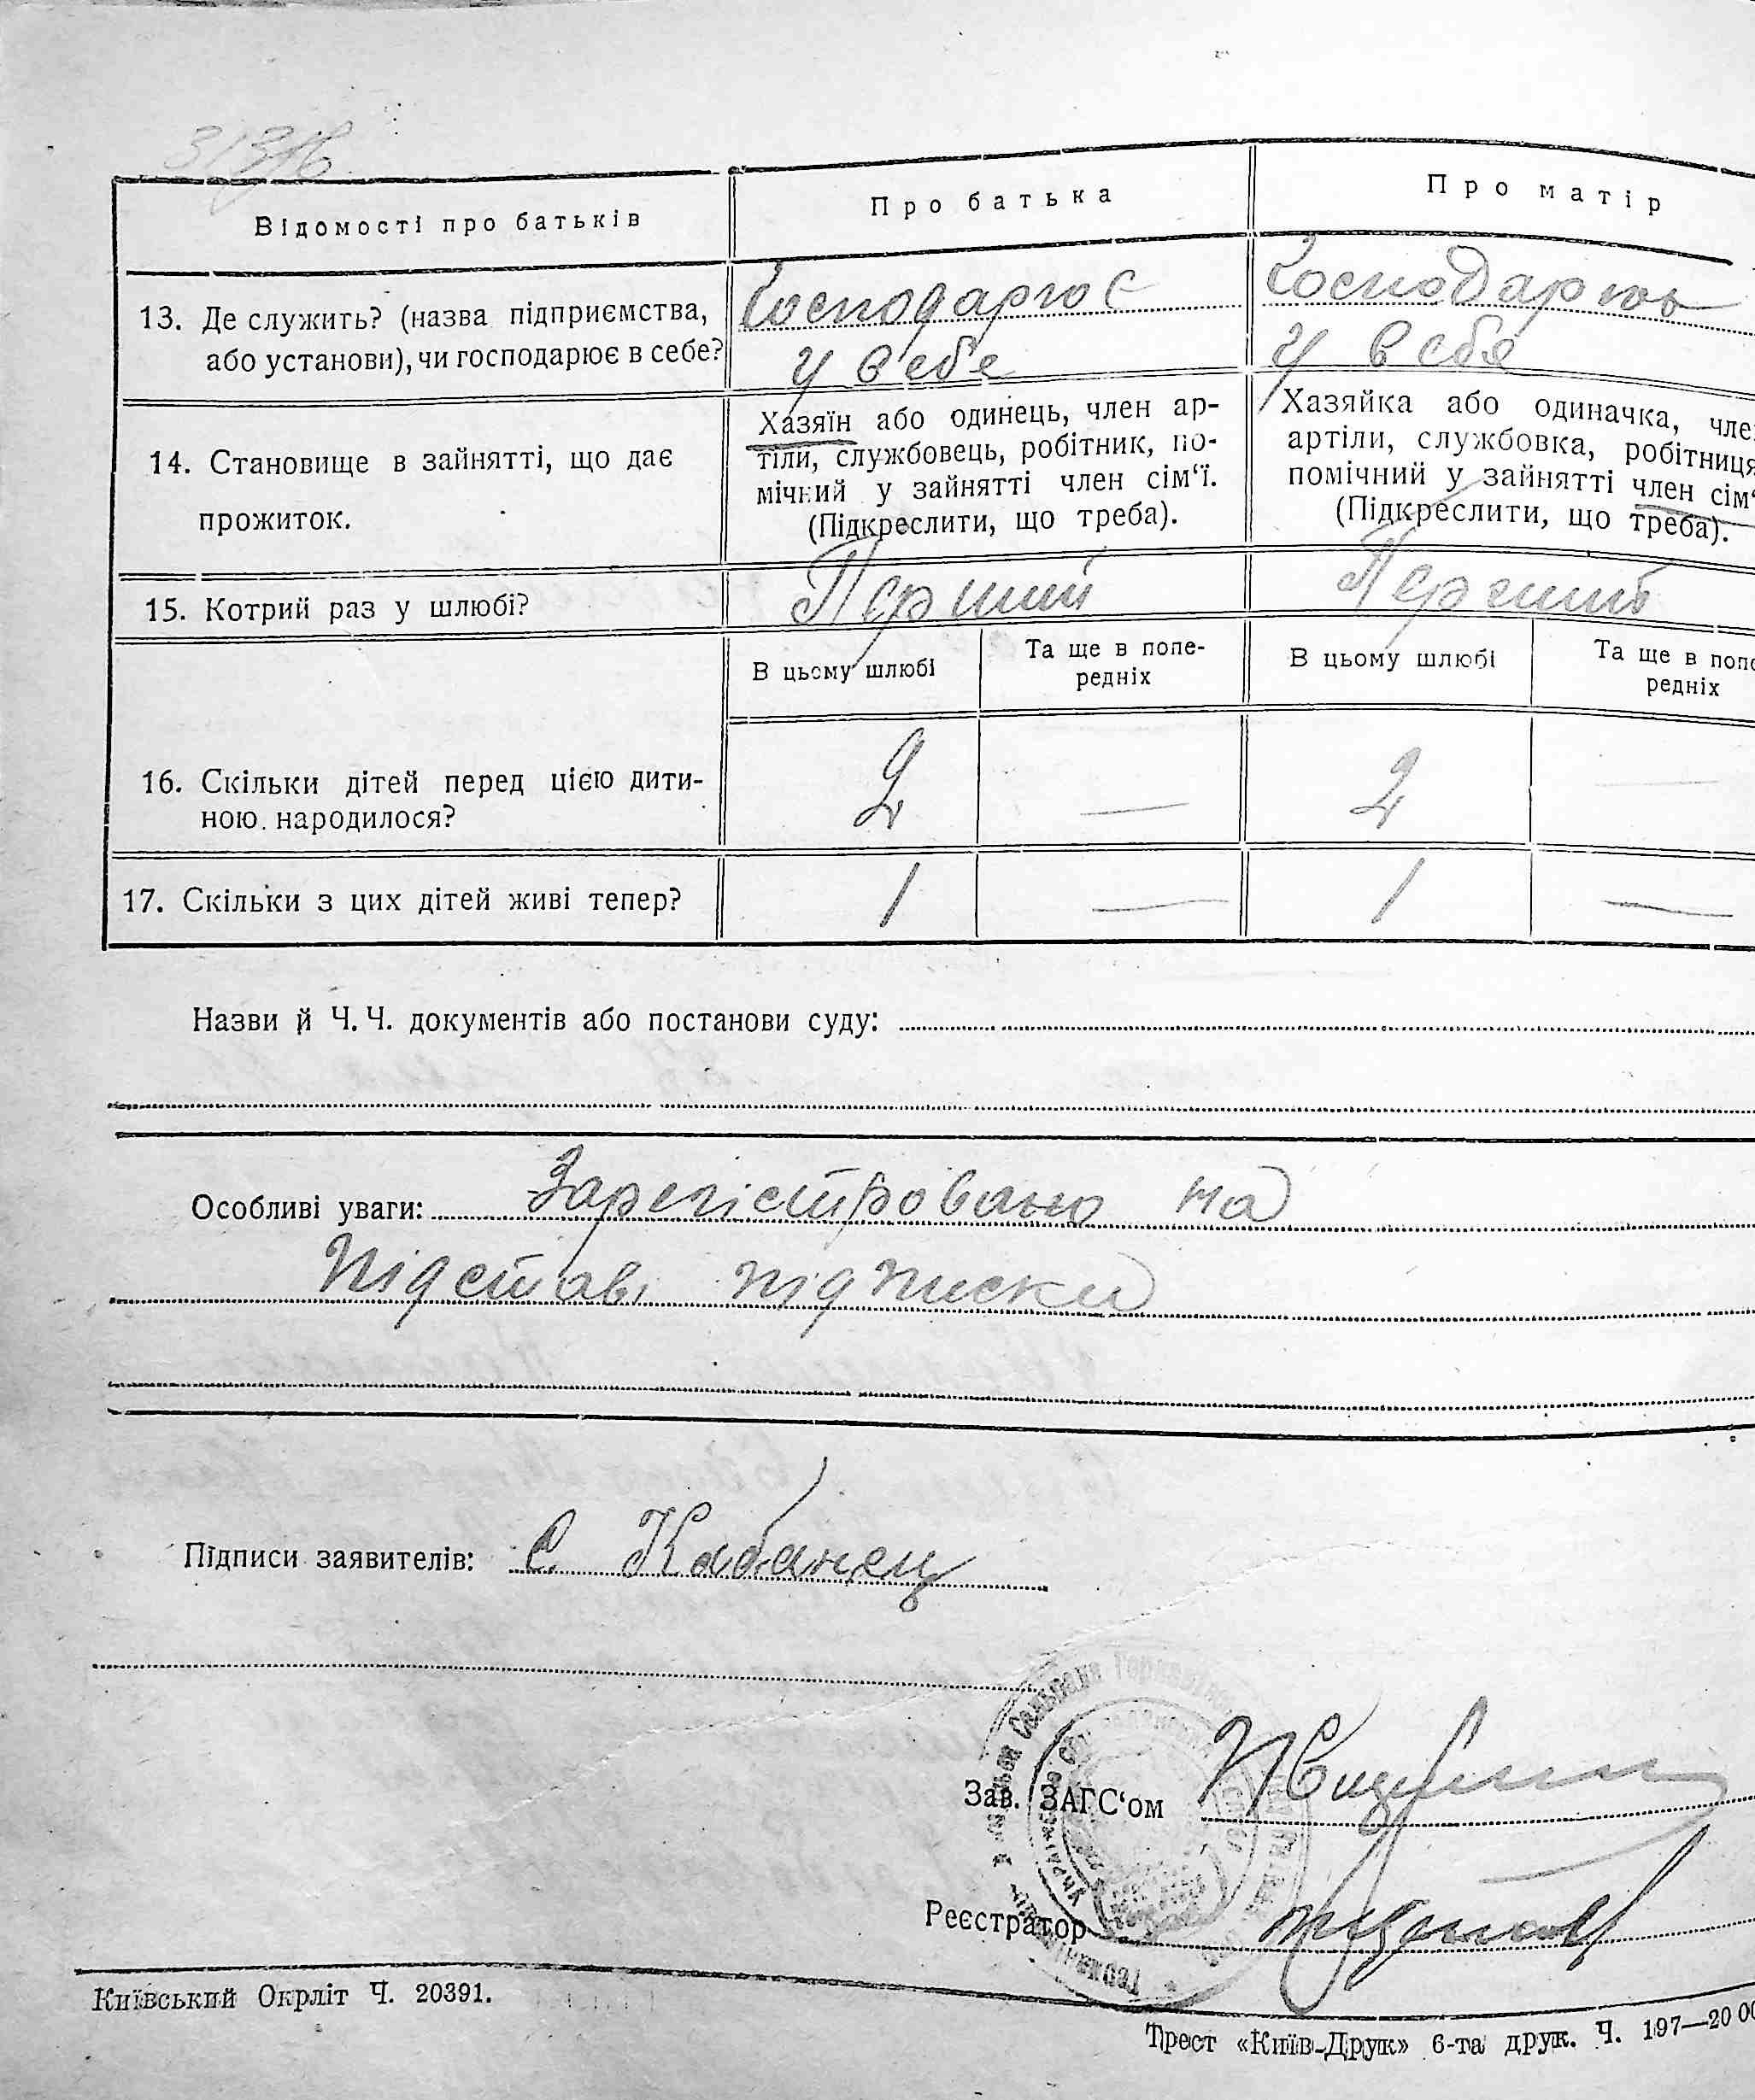 Відомості про батьків
Про батька
Про матір
13. Де служить? (назва підприємства,
або установи), чи господарює в себе?
Господарює
у себе
Господарює
у себе
14. Становище в зайнятті, що дає
прожиток.
Хазяїн або одинець, член ар-
тіли, службовець, робітник, по-
мічний у зайнятті член сім‘ї.
(Підкреслити, що треба).
Хазяйка або одиначка, чле
артіли, службовка, робітниця
помічний у зайнятті член сім‘
(Підкреслити, що треба).
15. Котрий раз у шлюбі?
Перший
Перший
В цьому шлюбі
Та ще в попе-
редніх
В цьому шлюбі
Та ще в попе
редніх
16. Скільки дітей перед цією дити-
ною народилося?
2 —
2 —
17. Скільки з цих дітей живі тепер?
1 —
1 —
Назви й Ч.Ч. документів або постанови суду:
Особливі уваги: Зарегістровано на
підставі підписки
Підписи заявителів: С Кабанец
Зав. ЗАГС‘ом
Реєстратор
Київський Окрліт Ч. 20391.
Трест «Київ-Друк» 6-та друк. Ч. 197—20 00